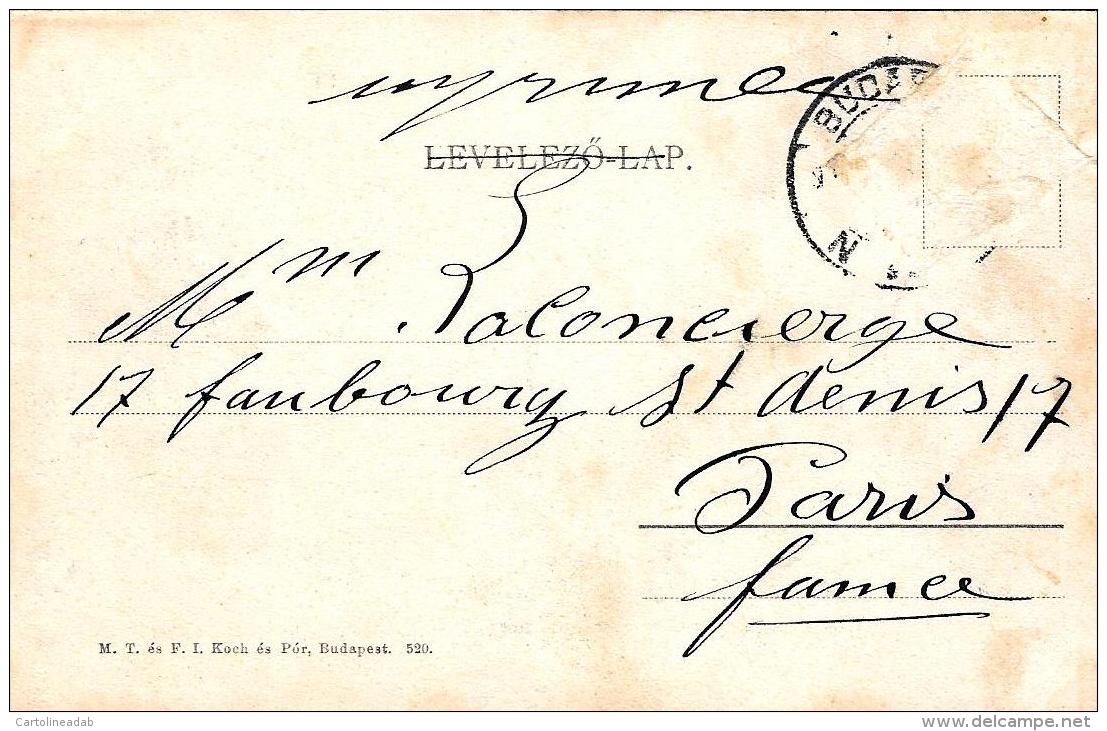 LEVELEZŐ-LAP.
BUDAP
N
Mme Laconcierge
17 faubourg St denis 17
Paris
france
M. T. és F. I. Koch és Pór, Budapest. 520.
Cartolineadab
delcampe.net